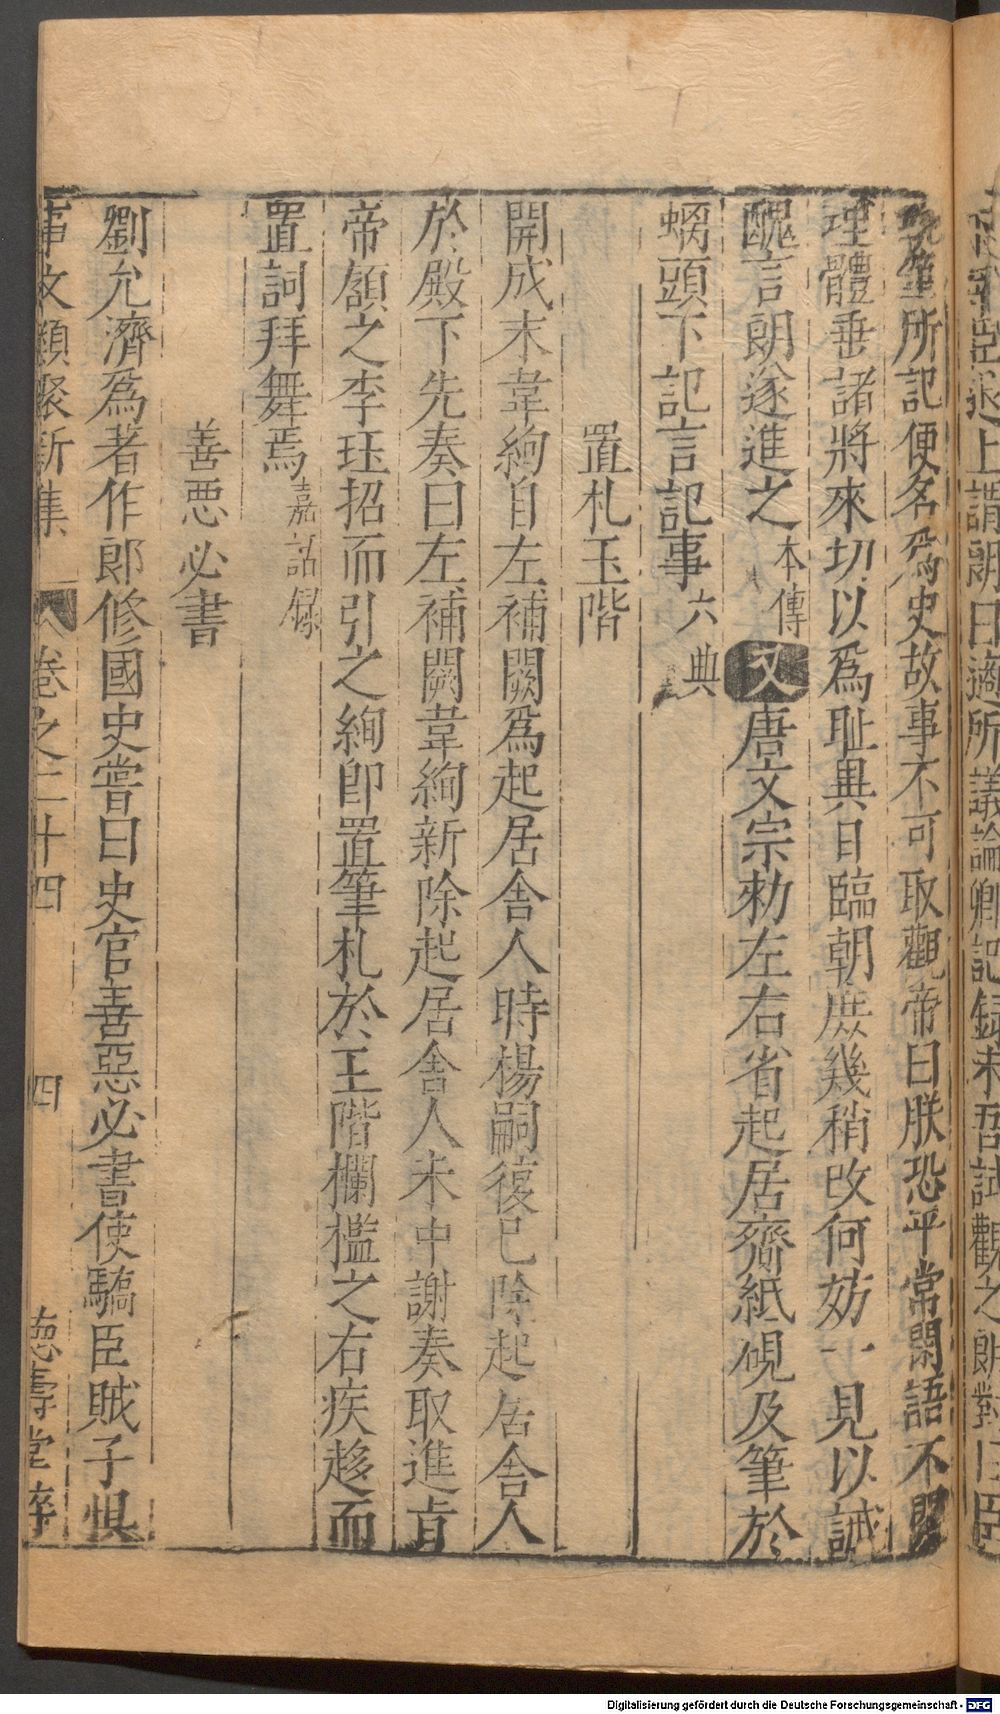 執筆所記便名爲史故事不可取觀帝曰朕恐平常閑語不關
理體垂諸將來切以爲耻異日臨朝庶幾稍改何妨一見以誡
醜言朗遂進之本傳又唐文宗勑左右省起居齋紙硯及筆於
螭頭下記言記事六典
置札玉階
開成末韋絢自左補闕爲起居舍人時楊嗣復已除起居舍人
於殿下先奏曰左補闕韋絢新除起居舍人未中謝奏取進旨
帝頷之李珏招而引之絢即置筆札於玉階欄檻之右疾趍而
置訶拜舞焉嘉話録
善惡必書
劉允濟爲著作郎修國史嘗曰史官善惡必書使驕臣賊子惧
事文類聚新集 卷之二十四 四 德壽堂梓
上謂朗曰適所議論卿記録未吾試觀之朗對曰臣
Digitalisierung gefördert durch die Deutsche Forschungsgemeinschaft - DFG